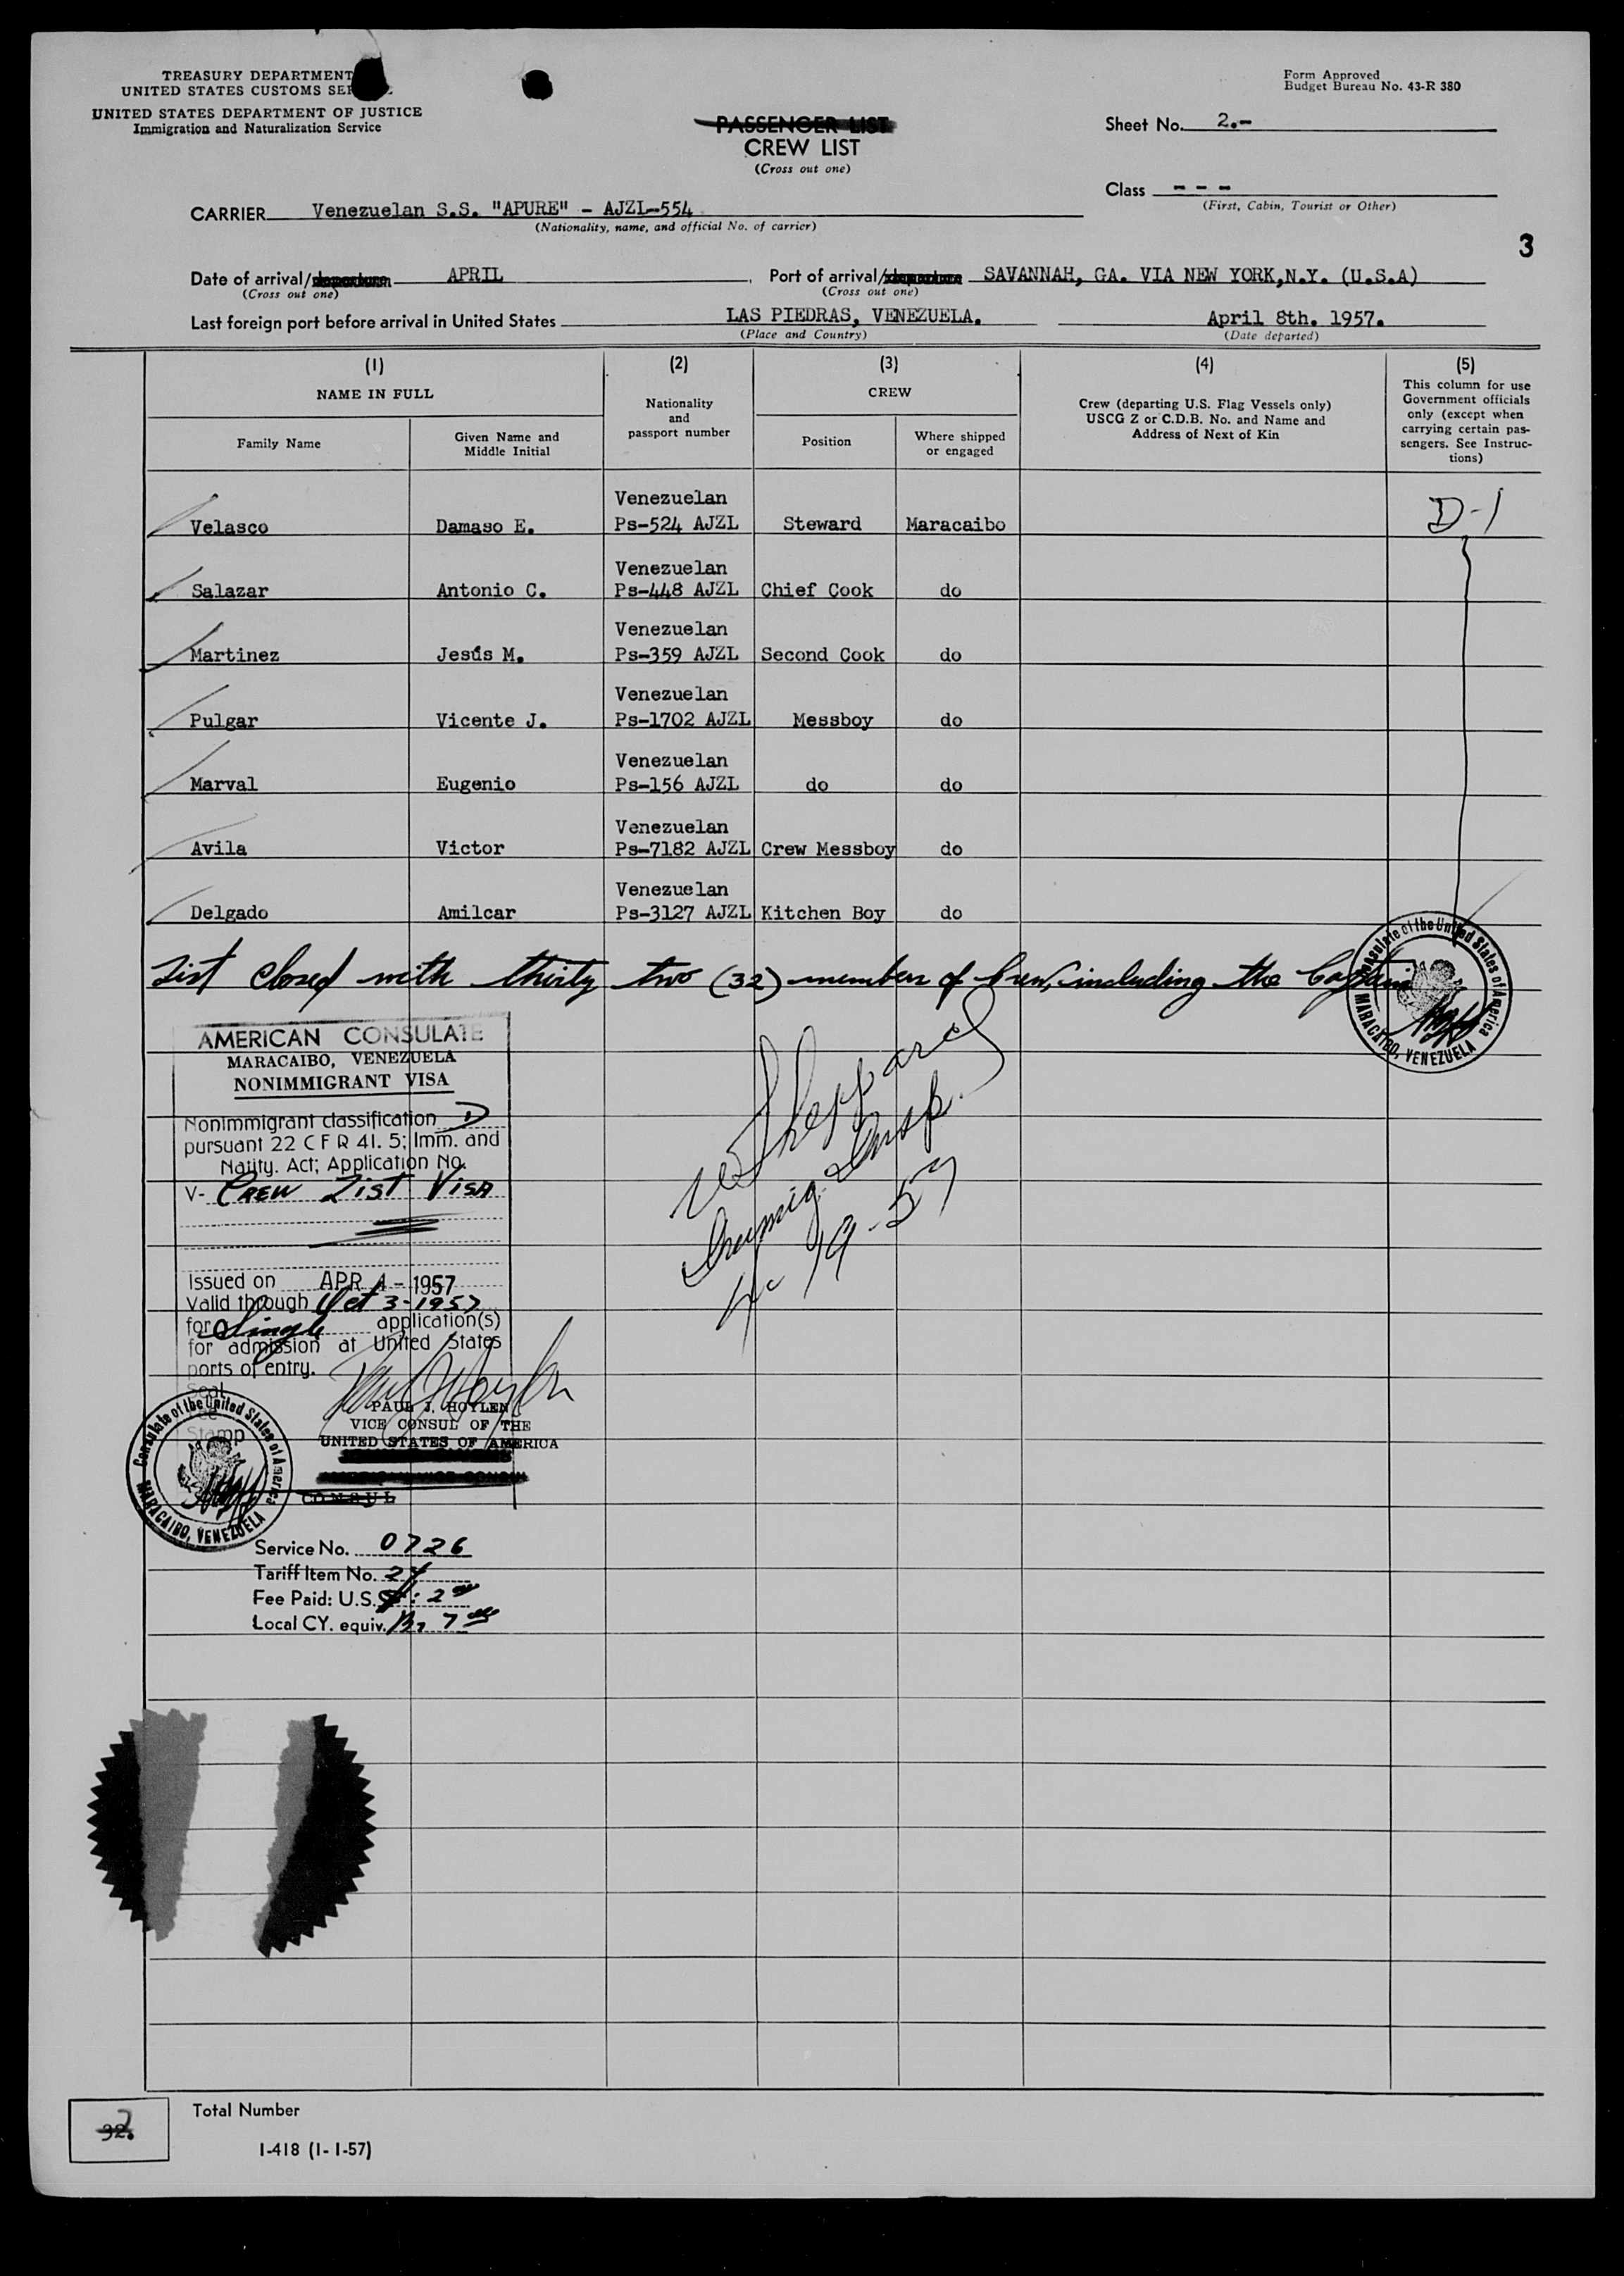 TREASURY DEPARTMENT
UNITED STATES CUSTOMS
UNITED STATES DEPARTMENT OF JUSTICE
Immigration and Naturalization Service
Form Approved
Budget Bureau No. 43-R 380
PASSENGER LIST
CREW LIST
(Cross out one)
Sheet No. 2.-
Class - - -
(First, Cabin, Tourist or Other)
CARRIER Venezuelan S.S. "APURE" - AJZL-554
(Nationality, name, and official No. of carrier)
3
Date of arrival/departure APRIL
(Cross out one)
Port of arrival/departure SAVANNAH, GA. VIA NEW YORK,N.Y. (U.S.A)
(Cross out one)
Last foreign port before arrival in United States LAS PIEDRAS, VENEZUELA. April 8th. 1957.
(Place and Country) (Date departed)
(1) (2) (3) (4) (5)
NAME IN FULL
Family Name
Given Name and
Middle Initial
Nationality
and
passport number
CREW
Position
Where shipped
or engaged
Crew (departing U.S. Flag Vessels only)
USCG Z or C.D.B. No. and Name and
Address of Next of Kin
This column for use
Government officials
only (except when
carrying certain pas-
sengers. See Instruc-
tions)
Venezuelan
Velasco Damaso E. Ps-524 AJZL Steward Maracaibo D-1
Venezuelan
Salazar Antonio C. Ps-448 AJZL Chief Cook do
Venezuelan
Martinez Jesús M. Ps-359 AJZL Second Cook do
Venezuelan
Pulgar Vicente J. Ps-1702 AJZL Messboy do
Venezuelan
Marval Eugenio Ps-156 AJZL do do
Venezuelan
Avila Victor Ps-7182 AJZL Crew Messboy do
Venezuelan
Delgado Amilcar Ps-3127 AJZL Kitchen Boy do
List closed with thirty two (32) members of Crew, including the Captain
Consulate of the United States of America
MARACAIBO, VENEZUELA
AMERICAN CONSULATE
MARACAIBO, VENEZUELA
NONIMMIGRANT VISA
Nonimmigrant classification D
pursuant 22 CFR 41. 5; Imm. and
Natity. Act; Application No.
V- CREW LIST VISA
Issued on APR 4 - 1957
Valid through Oct 3-1957
for Single application(s)
for admission at United States
ports of entry.
Seal
Fee
Stamp
Sheppard
Immig. Insp.
4-19-57
PAUL J. HOYLEN
VICE CONSUL OF THE
UNITED STATES OF AMERICA
CONSUL
Consulate of the United States of America
MARACAIBO, VENEZUELA
Service No. 0726
Tariff Item No. 24
Fee Paid: U.S. $: 2 00
Local CY. equiv. Bs 7 00
32.
Total Number
I-418 (1-1-57)